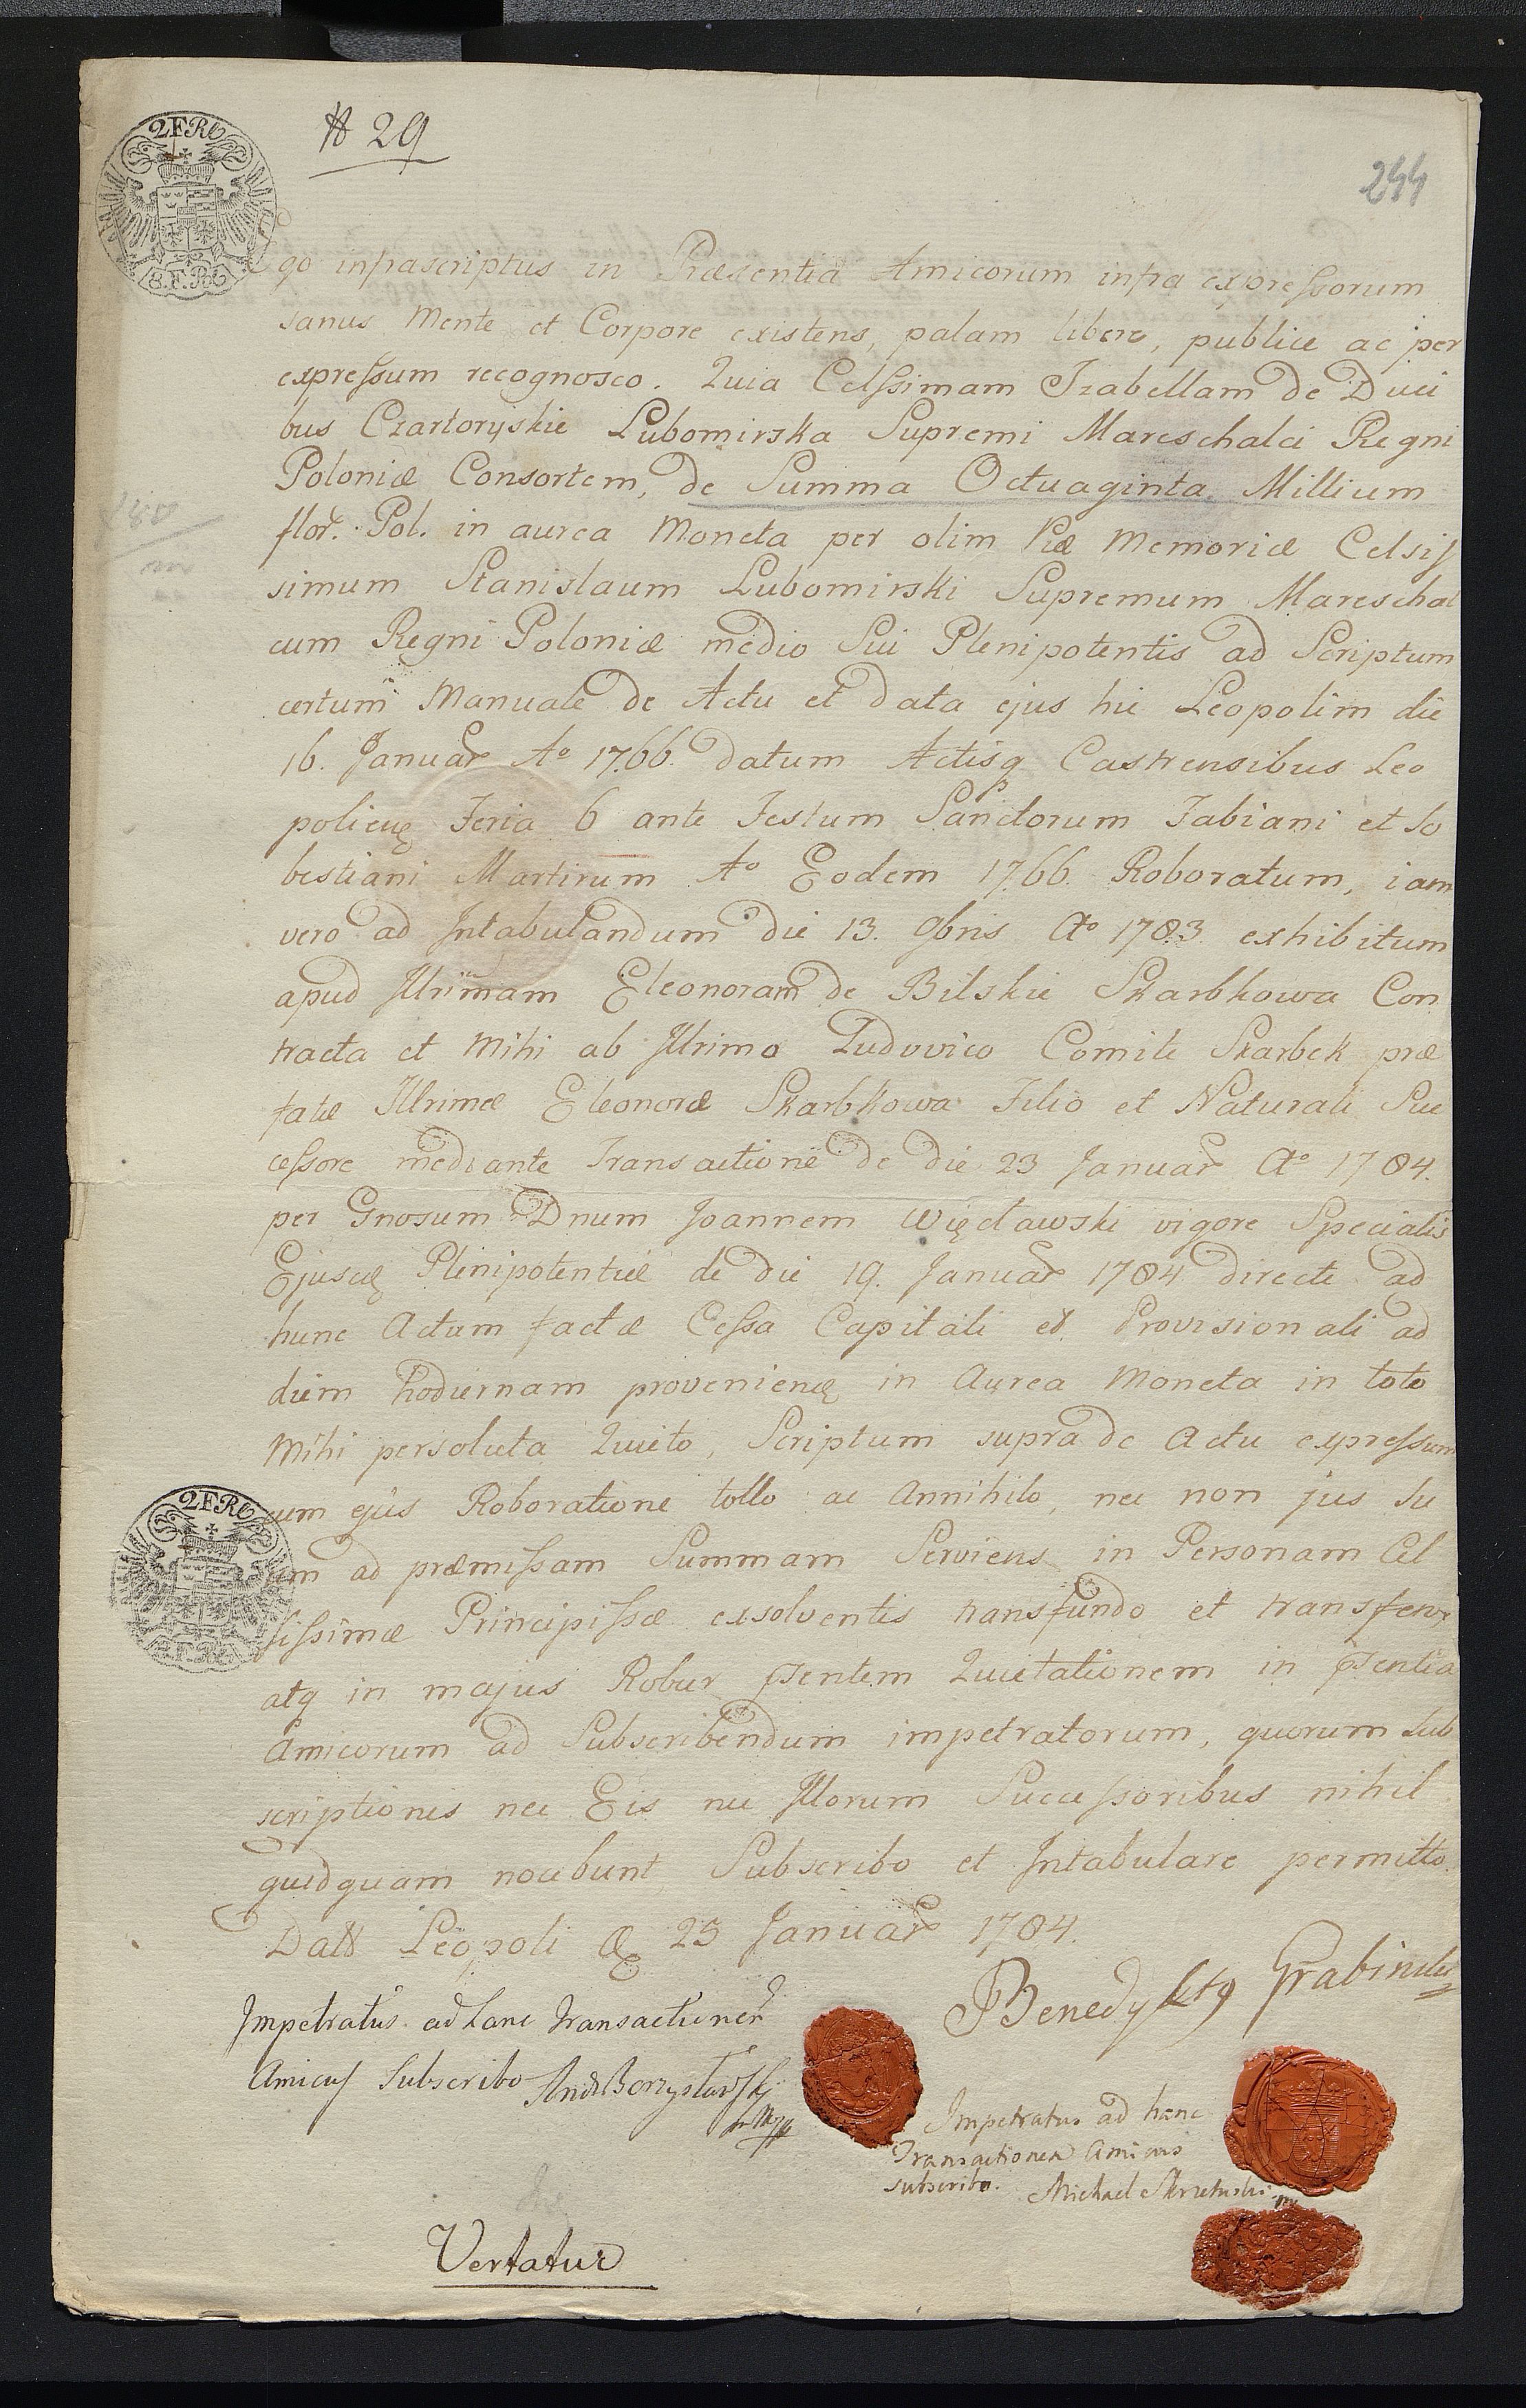 № 29
244
2FRC
8.F.RC
Ego infrascriptus in Præsentia Amicorum infra expressorum
sanus Mente et Corpore existens, palam libere, publice ac per
expressum recognosco. Quia Celssimam Izabellam de Duci
bus Czartoryskie Lubomirska Supremi Mareschalci Regni
Poloniæ Consortem, de Summa Octuaginta Millium
flor. Pol. in aurea Moneta per olim Piæ Memoriæ Celsis
simum Stanislaum Lubomirski Supremum Mareschal
cum Regni Poloniæ medio Sui Plenipotentis ad Scriptum
certum Manuale de Actu et Data ejus hic Leopolim die
16. Januar Ao 1766. Datum Actisq Castrensibus Leo
polien Feria 6 ante Festum Sanctorum Fabiani et Se
bestiani Martirum Ao Eodem 1766. Roboratum, iam
vero ad Intabulandum die 13. 9bris Ao 1783. exhibitum
apud Illrimam Eleonoram de Bilskie Skarbkowa Con
tracta et Mihi ab Illrimo Ludovico Comite Skarbek præ
fatæ Illrimæ Eleonoræ Skarbkowa Filio et Naturali Suc
cessore mediante Transactione de die 23 Januar Ao 1784.
per Gnosum Dnum Joannem Więcławski vigore Specialis
Ejusdę Plenipotentiæ de die 19. Januar 1784 directe ad
hunc Actum factæ Cessa Capitali et Provisionali ad
diem hodiernam provenienę in Aurea Moneta in toto
Mihi persoluta Quieto, Scriptum supra de Actu expressum
cum ejus Roboratione tollo ac Annihilo, nec non jus Su
um ad præmissam Summam Serviens in Personam Cel
sissimæ Principissæ exsolventis transfundo et transfero,
atq in majus Robur psentem Quietationem in psentia
Amicorum ad Subscribendum impetratorum, quorum Sub
scriptiones nec Eis nec Illorum Successoribus nihil
quidquam nocebunt, Subscribo et Intabulare permitto.
Datt Leopoli 25 Januar 1784.
2FRC
8.F.RC
Benedykt Grabinski
Impetratus ad hanc Transactionem
Amicus Subscribo And. Borzysławski
mpp
Impetratus ad hanc
Transactionem Amicus
subscribo. Michael Skrzetuski mp
Vertatur